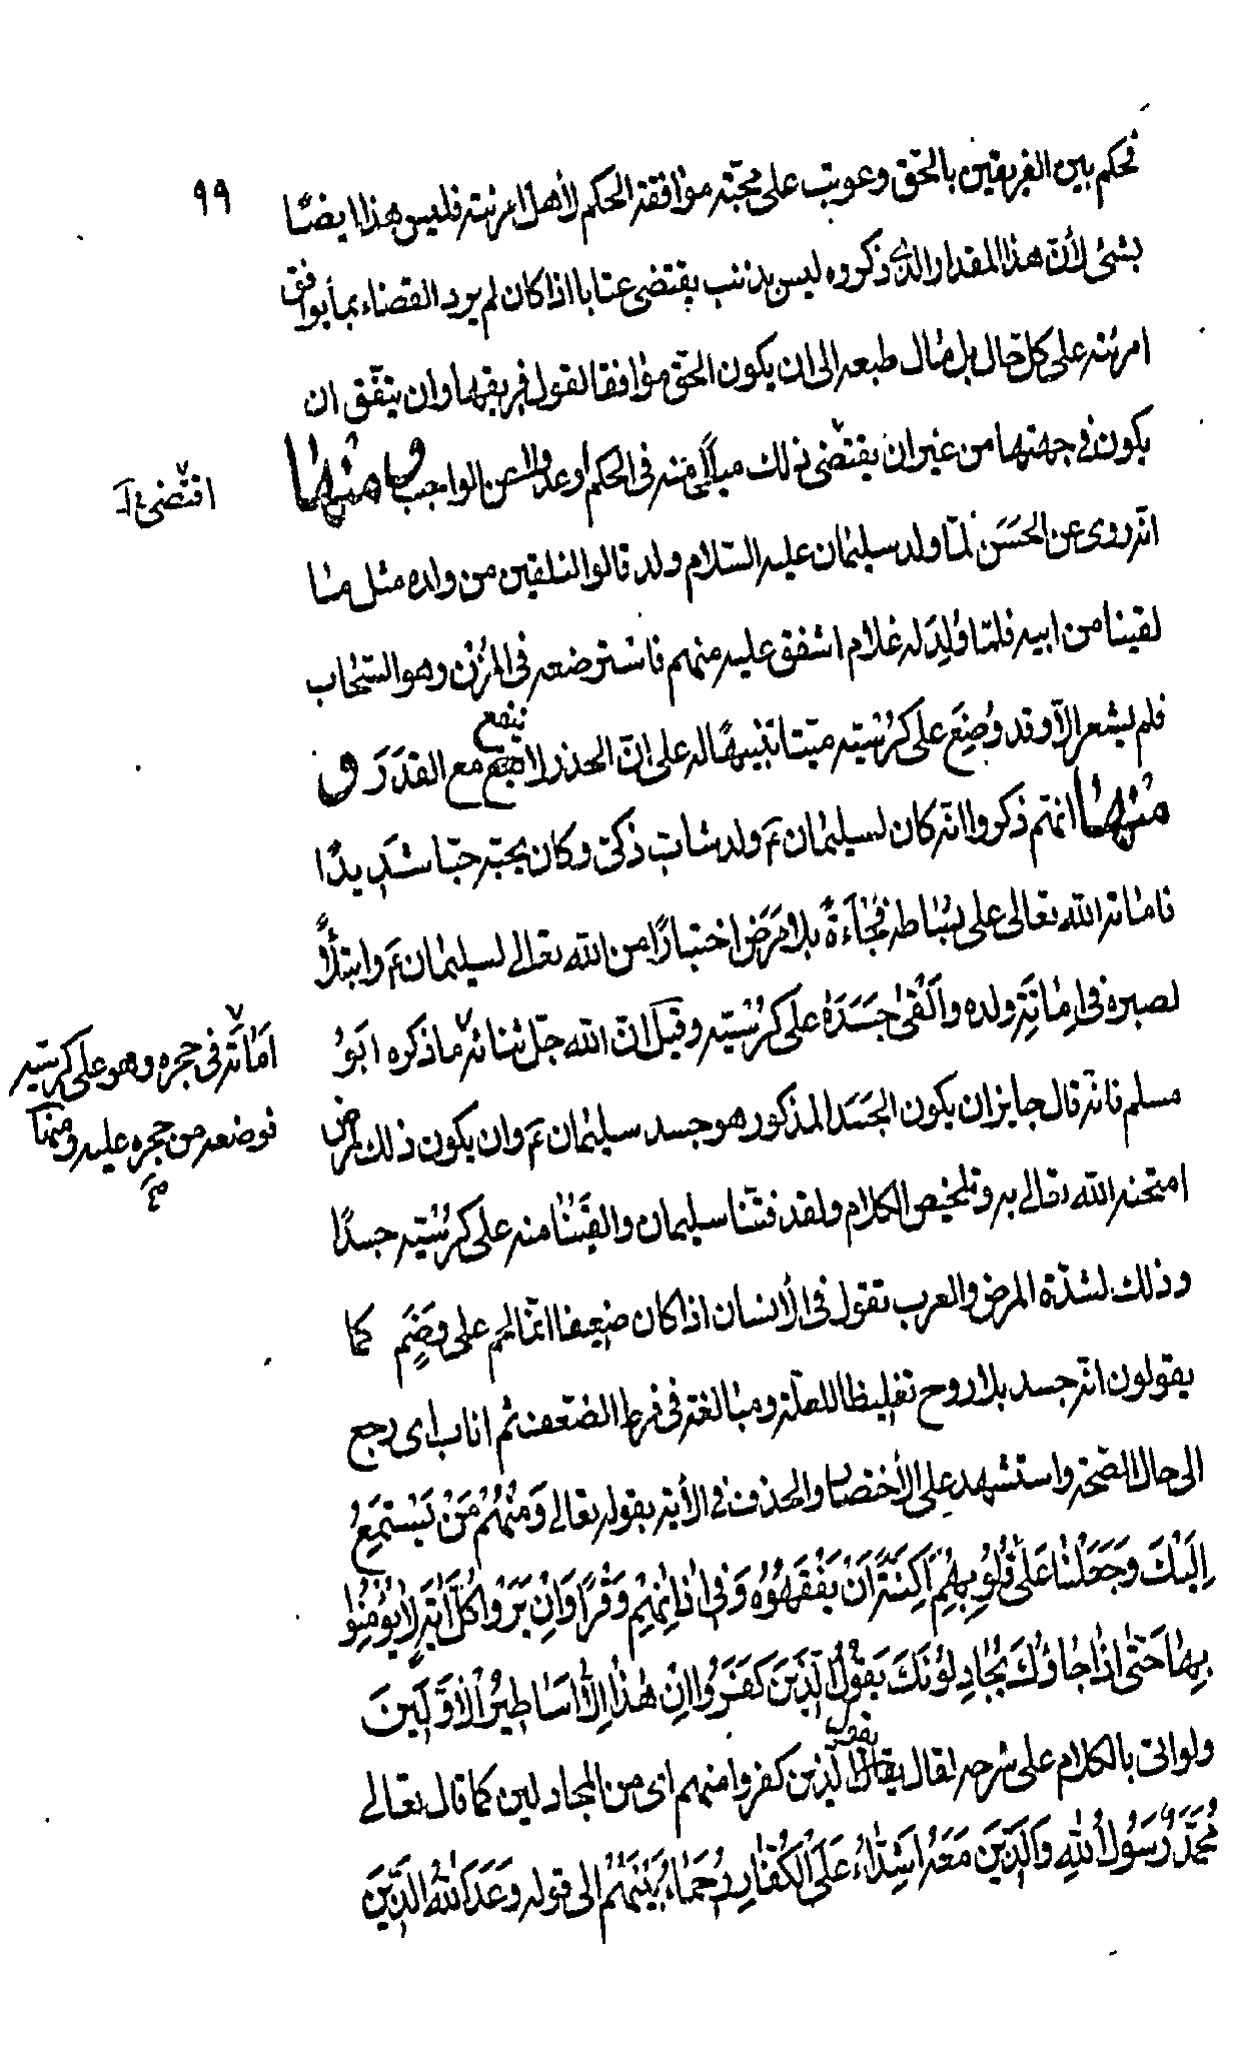 ٩٩
فحكم بين الفريقين بالحق وعوتب على محبّته موافقة الحكم لأهل امرئته فليس هذا ايضًا
بشئ لأنّ هذا المقدار الذى ذكروه ليس بذنب يقتضى عتابا اذا كان لم يرد القضاء بما يوافق
امرئته على كل حال بل مال طبعه الى ان يكون الحق موافقا لقول فريقها وان يتّفق ان
يكون فى جهتها من غير ان يقتضى ذلك ميلاً منه فى الحكم او عدولا عن الواجب ومنها
اقتضى
انّه روى عن الحَسَن لمّا ولد سليمان عليه السّلام ولد قالوا لنلقين من ولده مثل ما
لقينا من ابيه فلمّا وُلِدَ له غلام اشفق عليه منهم فاسترضعه فى المُزْن وهو السّحاب
فلم يشعر الّا وقد وُضِعَ على كُرْسيّه ميّتا تنبيهًا له على انّ الحذر لا ينفع مع القَدَر و
ينفع
منها انّهم ذكروا انّه كان لسليمان ع ولد شابّ ذكىّ وكان يحبّه حبّا شَديدًا
فاماته الله تعالى على بساطه فُجَاءَةً بلا مَرَض اختبارًا من الله تعالى لسليمان ع وابتلاءً
لصبره فى اِماتَةِ ولده واَلْقىٰ جَسَدَهُ على كُرْسيّه وقيل انّ الله جلّ ثنائه ما ذكره ابَوُ
اَمَاتَه فى حجره وهو على كرسيّه
فوضعه من حجره عليه ومنها
مسلم فانّه قال جايز ان يكون الجَسَد المذكور هو جسد سليمان ع وان يكون ذلك لمرض
امتحنه الله تعالى به وتلخيص الكلام ولقد فتنّا سليمان والقَيْنا منه على كُرْسيّه جسدًا
وذلك لشدّة المرض والعرب تقول فى الأنسان اذا كان ضعيفا انّما لحم على وَضَم كما
يقولون انّه جسد بلا روح تغليظا للعلّة ومبالغة فى فرط الضّعف ثم اناب اى رجع
الى حال الصّحة واستشهد على الأختصار والحذف فى الأية بقوله تعالى وَمِنْهُمْ مَنْ يَسْتَمِعُ
اِلَيْكَ وَجَعَلْنا عَلىٰ قُلُوبِهِمْ اَكِنَّةً اَنْ يَفْقَهُوُه وَفى اذانِهِمْ وَقْرًا وَاِنْ يَرَوْا كُلَّ ايَةٍ لا يُؤْمِنُوا
بِها حَتّىٰ اِذا جاؤُكَ يُجادِلُونَكَ يَقُولُ الَّذينَ كَفَرُوا اِنْ هٰذا اِلّا اَساطيرُ الْاَوَّلينَ
ولو اتى بالكلام على شرحه لقال يقال الّذين كفروا منهم اى من المجادلين كما قال تعالى
يقول
مُحَمَّدٌ رَسُولُ اللهِ وَالَّذينَ مَعَهُ اَشِدّاءُ عَلَى الْكُفّارِ رُحَماءُ بَيْنَهُمْ الى قوله وَعَدَ اللهُ الَّذينَ